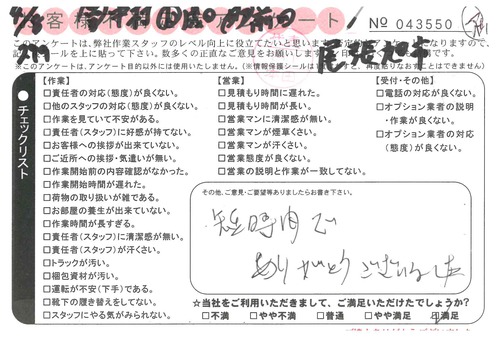 お客様アンケート
No 043550
このアンケートは、弊社作業スタッフのレベル向上に役立てたいと思います。
シールを上に貼って下さい。数多くの正直なご意見をお願いします。
※このアンケートは、アンケート目的以外には使用いたしません。(※情報保護シールは
チェックリスト
【作業】
□責任者の対応(態度)が良くない。
□他のスタッフの対応(態度)が良くない。
□作業を見ていて不安がある。
□責任者(スタッフ)に好感が持てない。
□お客様への挨拶が出来ていない。
□ご近所への挨拶・気遣いが無い。
□作業開始前の内容確認がなかった。
□作業開始時間が遅れた。
□荷物の取り扱いが雑である。
□お部屋の養生が出来ていない。
□作業時間が長すぎる。
□責任者(スタッフ)に清潔感が無い。
□責任者(スタッフ)が汗くさい。
□トラックが汚い。
□梱包資材が汚い。
□運転が不安(下手)である。
□靴下の履き替えをしてない。
□スタッフにやる気がみられない。
【営業】
□見積もり時間に遅れた。
□見積もり時間が長い。
□営業マンに清潔感が無い。
□営業マンが煙草くさい。
□営業マンが汗くさい。
□営業態度が良くない。
□営業の説明と作業が一致してない。
【受付・その他】
□電話の対応が良くない。
□オプション業者の説明
・作業が良くない。
□オプション業者の対応
(態度)が良くない。
その他、ご意見・ご要望等ありましたらお書き下さい。
短時間で
ありがとうございました
☆当社をご利用いただきまして、ご満足いただけたでしょうか?
□不満 □やや不満 □普通 □やや満足 □満足